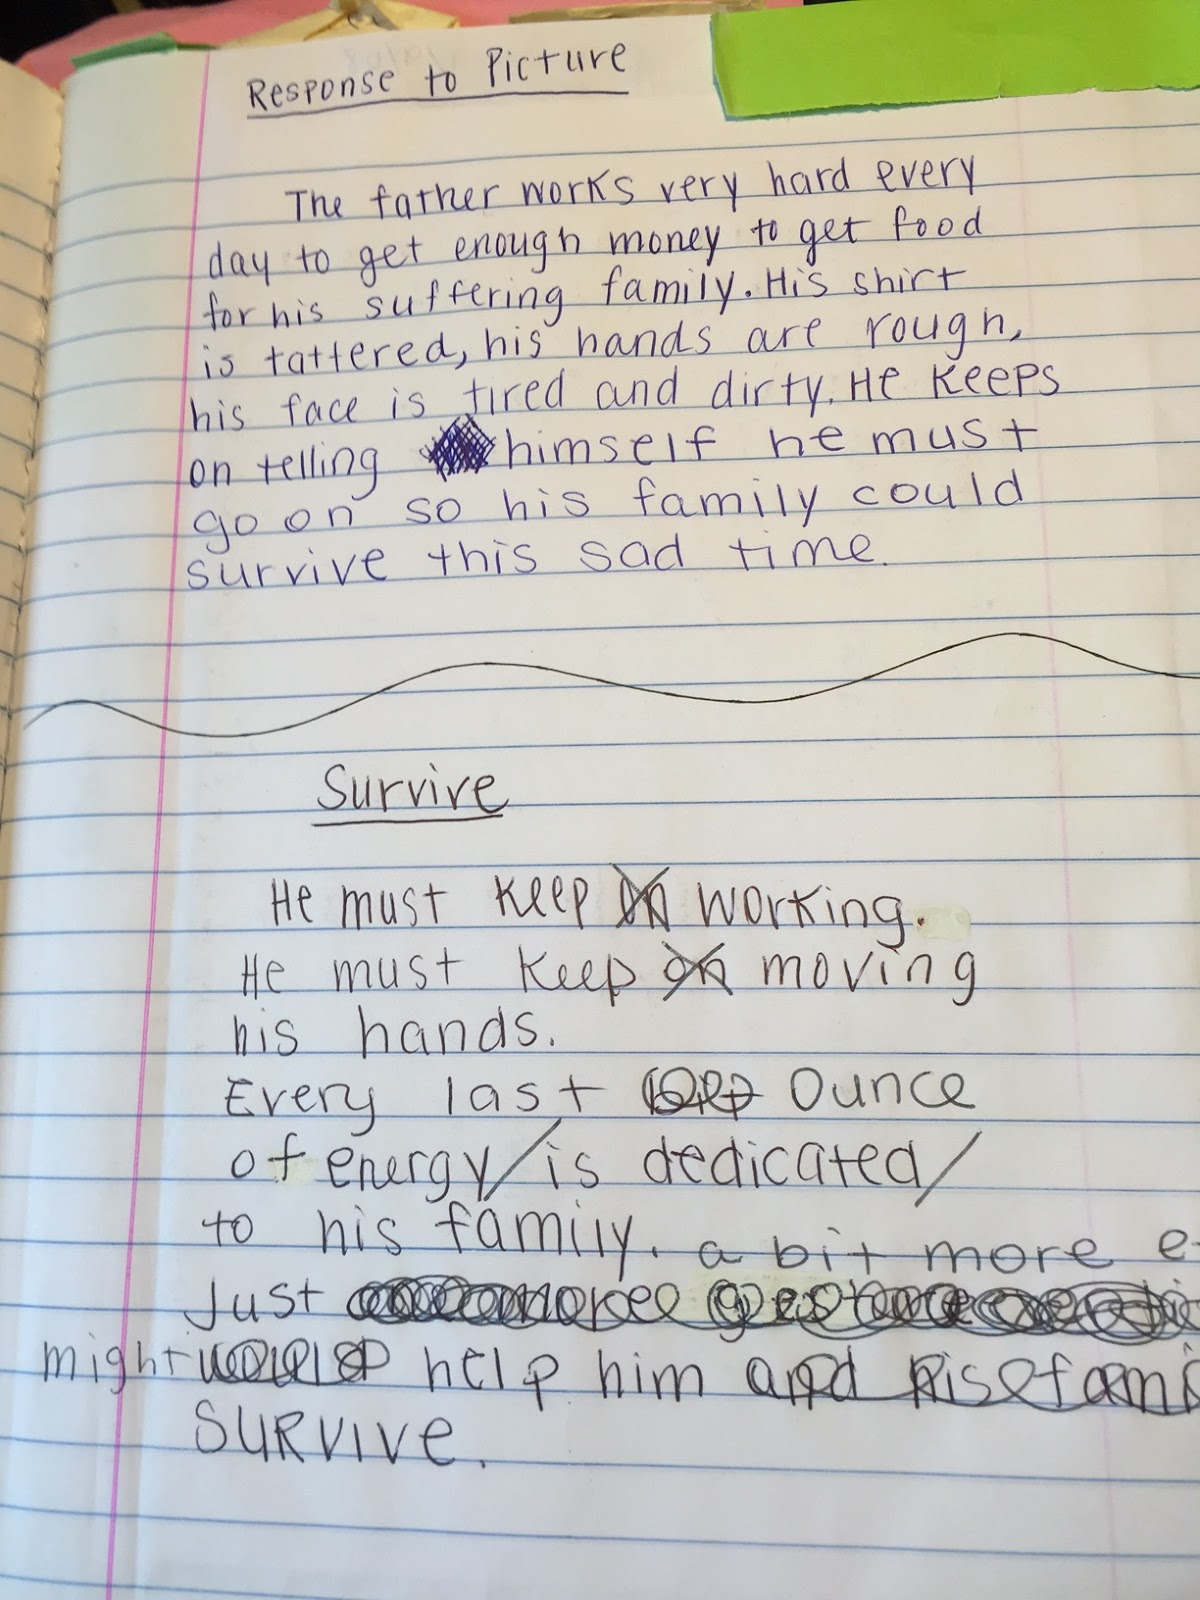 Response to Picture
The father works very hard every
day to get enough money to get food
for his suffering family. His shirt
is tattered, his hands are rough,
his face is tired and dirty. He keeps
on telling himself he must
go on so his family could
survive this sad time.
Survive
He must keep on working.
He must keep on moving
his hands.
Every last ounce
of energy/is dedicated/
to his family.
a bit more
Just
might would help him and his fami
SURVIVE.